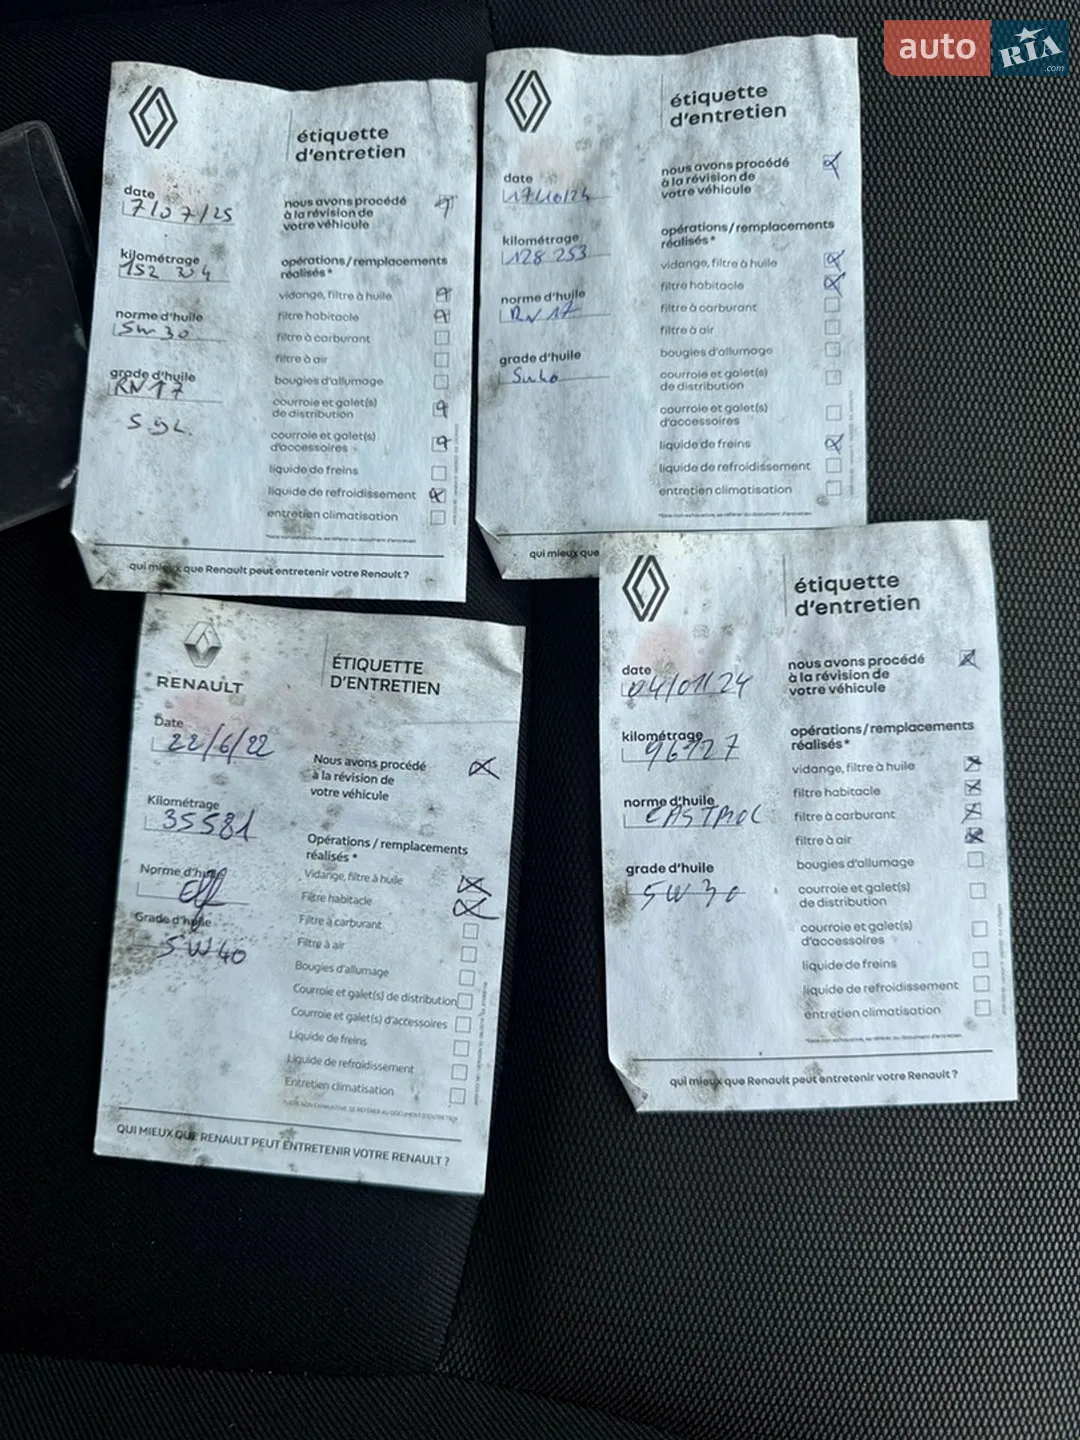 auto RIA.com
étiquette
d'entretien
date
7/07/25
nous avons procédé
à la révision de
votre véhicule
kilométrage
152 324
opérations/remplacements
réalisés*
norme d'huile
5W30
vidange, filtre à huile
filtre habitacle
filtre à carburant
filtre à air
grade d'huile
RN17
bougies d'allumage
courroie et galet(s)
de distribution
courroie et galet(s)
d'accessoires
liquide de freins
liquide de refroidissement
entretien climatisation
*liste non exhaustive, se référer au document d'entretien
qui mieux que Renault peut entretenir votre Renault ?
étiquette
d'entretien
date
17/10/24
nous avons procédé
à la révision de
votre véhicule
kilométrage
128 253
opérations/remplacements
réalisés*
norme d'huile
RN 17
vidange, filtre à huile
filtre habitacle
filtre à carburant
filtre à air
grade d'huile
5W40
bougies d'allumage
courroie et galet(s)
de distribution
courroie et galet(s)
d'accessoires
liquide de freins
liquide de refroidissement
entretien climatisation
*liste non exhaustive, se référer au document d'entretien
qui mieux que
RENAULT
ÉTIQUETTE
D'ENTRETIEN
Date
22/6/22
Nous avons procédé
à la révision de
votre véhicule
Kilométrage
35581
Opérations / remplacements
réalisés *
Norme d'huile
Vidange, filtre à huile
Filtre habitacle
Filtre à carburant
Grade d'huile
5W40
Filtre à air
Bougies d'allumage
Courroie et galet(s) de distribution
Courroie et galet(s) d'accessoires
Liquide de freins
Liquide de refroidissement
Entretien climatisation
*LISTE NON EXHAUSTIVE, SE RÉFÉRER AU DOCUMENT D'ENTRETIEN
QUI MIEUX QUE RENAULT PEUT ENTRETENIR VOTRE RENAULT ?
étiquette
d'entretien
date
04/01/24
nous avons procédé
à la révision de
votre véhicule
kilométrage
96127
opérations/remplacements
réalisés*
norme d'huile
CASTROL
vidange, filtre à huile
filtre habitacle
filtre à carburant
filtre à air
grade d'huile
5W30
bougies d'allumage
courroie et galet(s)
de distribution
courroie et galet(s)
d'accessoires
liquide de freins
liquide de refroidissement
entretien climatisation
*liste non exhaustive, se référer au document d'entretien
qui mieux que Renault peut entretenir votre Renault ?